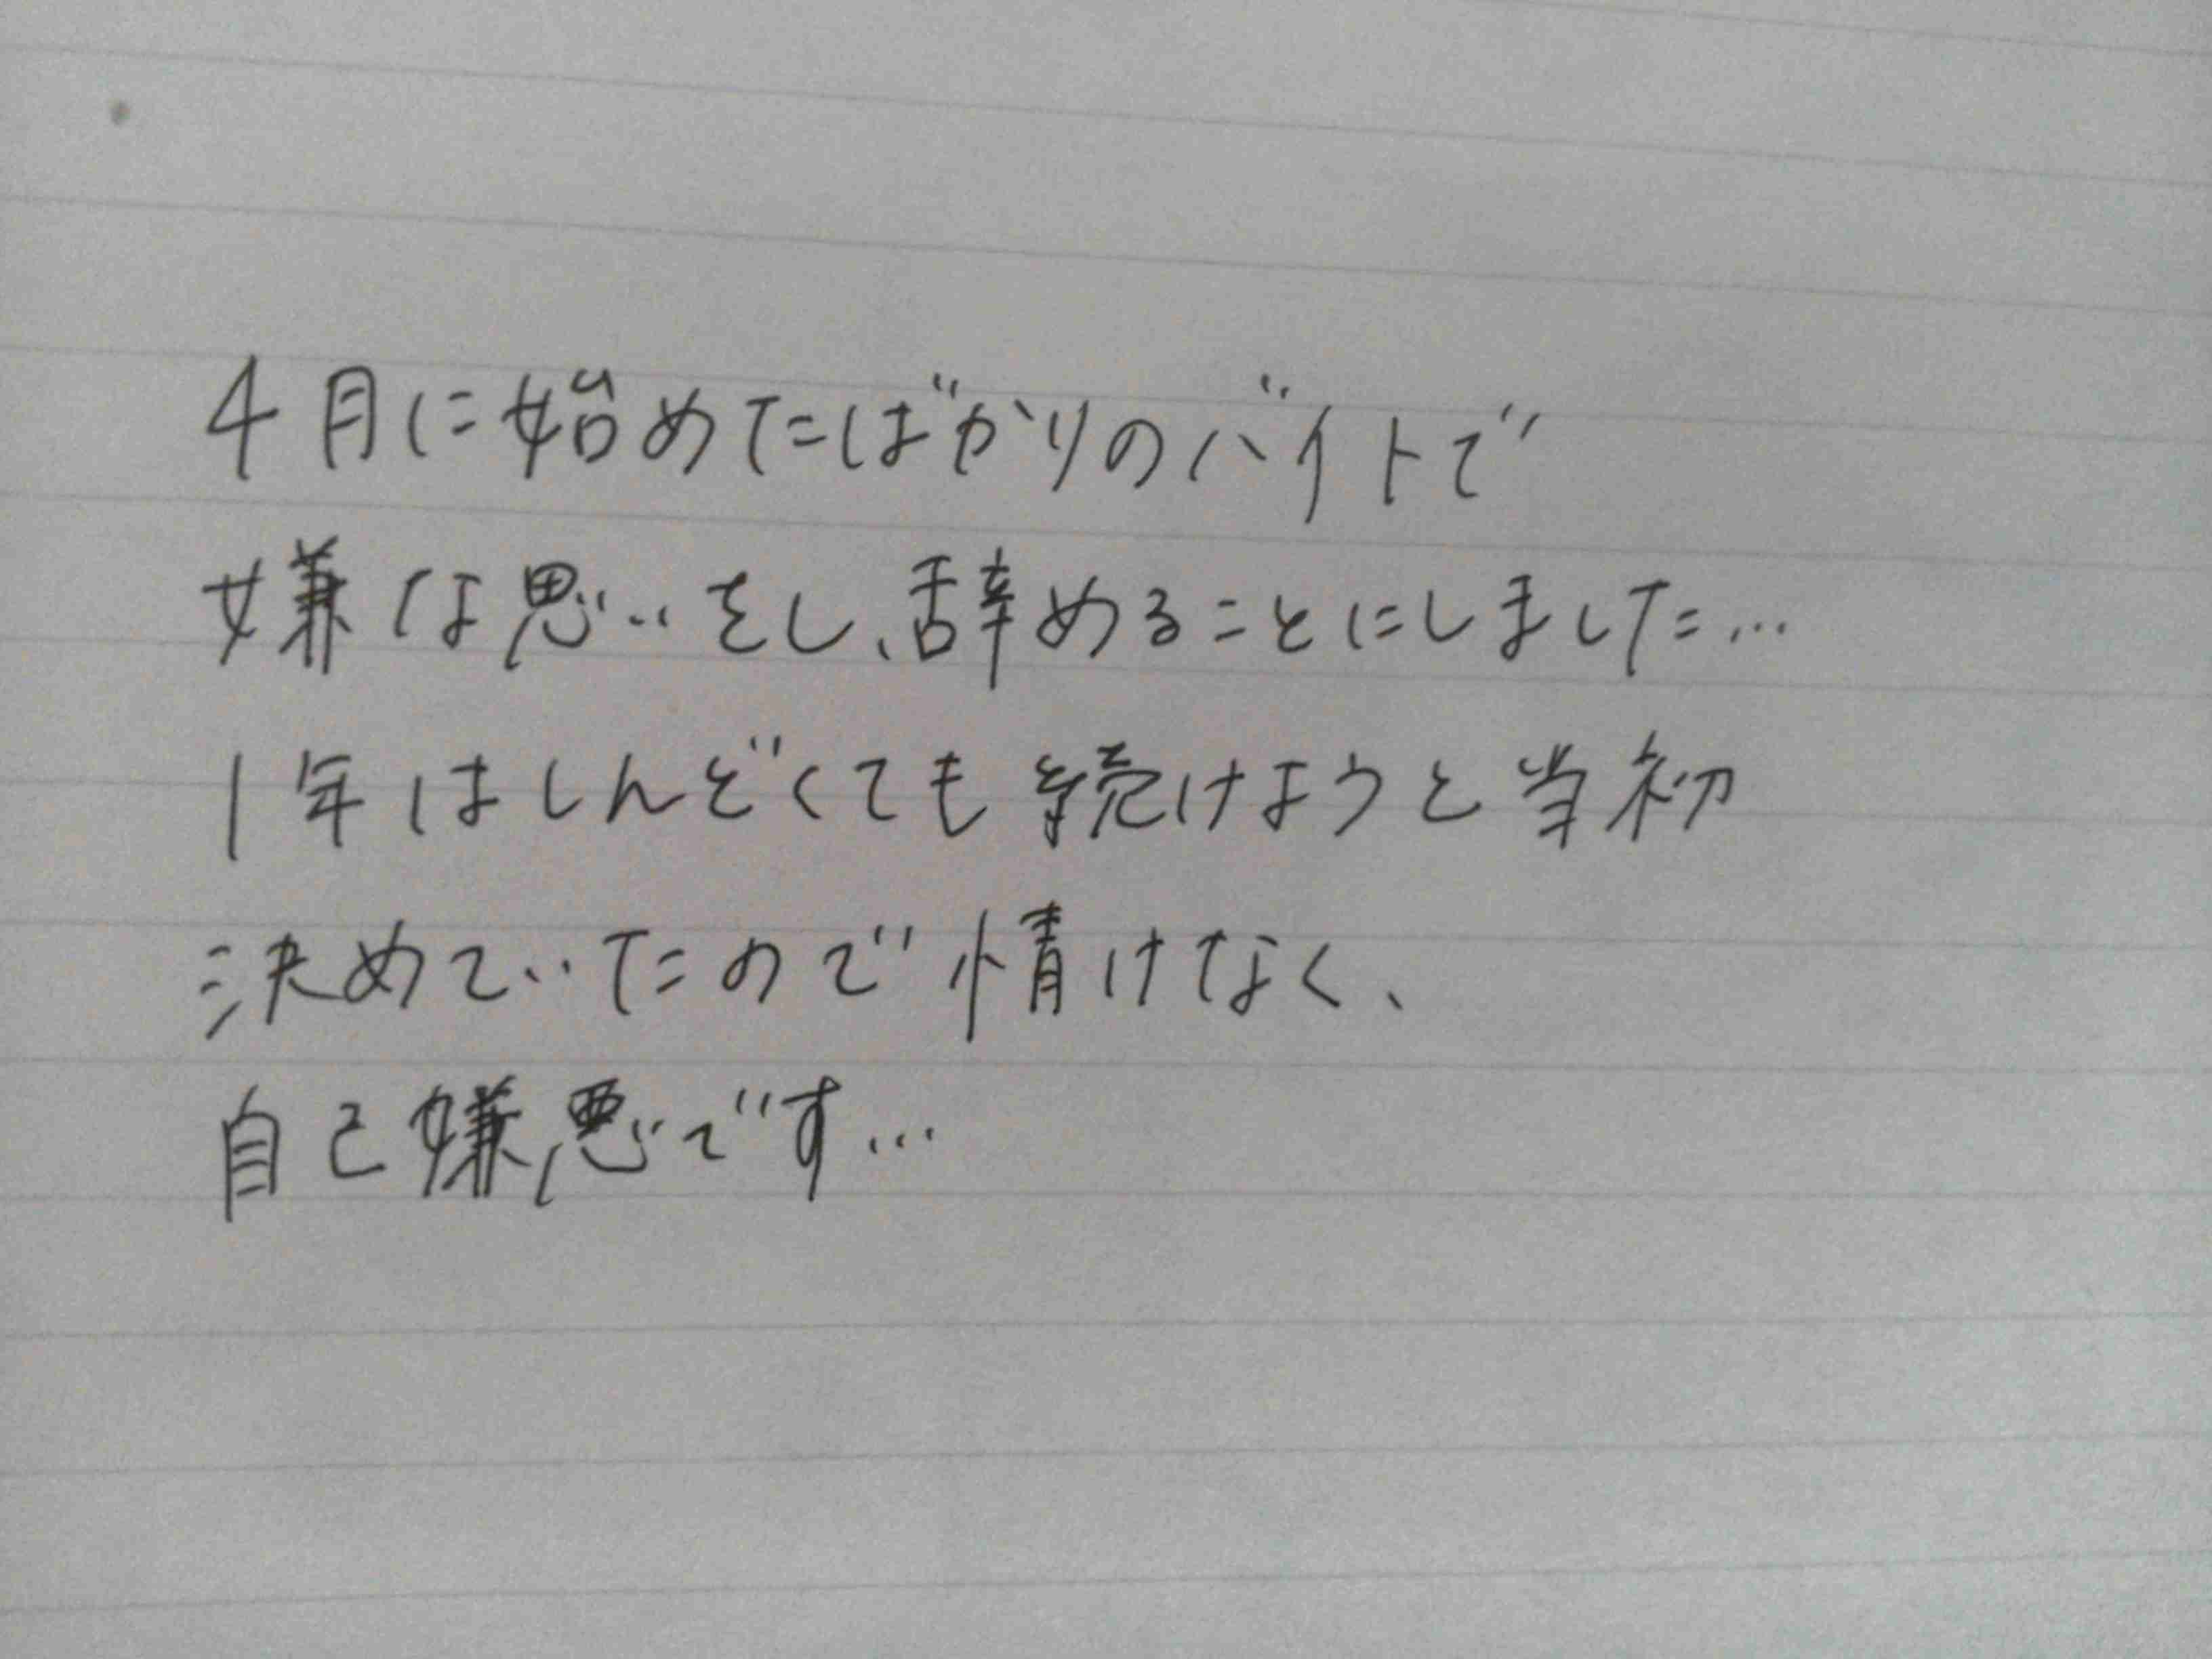 4月に始めたばかりのバイトで
嫌な思いをし、辞めることにしました…
1年はしんどくても続けようと当初
決めていたので情けなく、
自己嫌悪です…